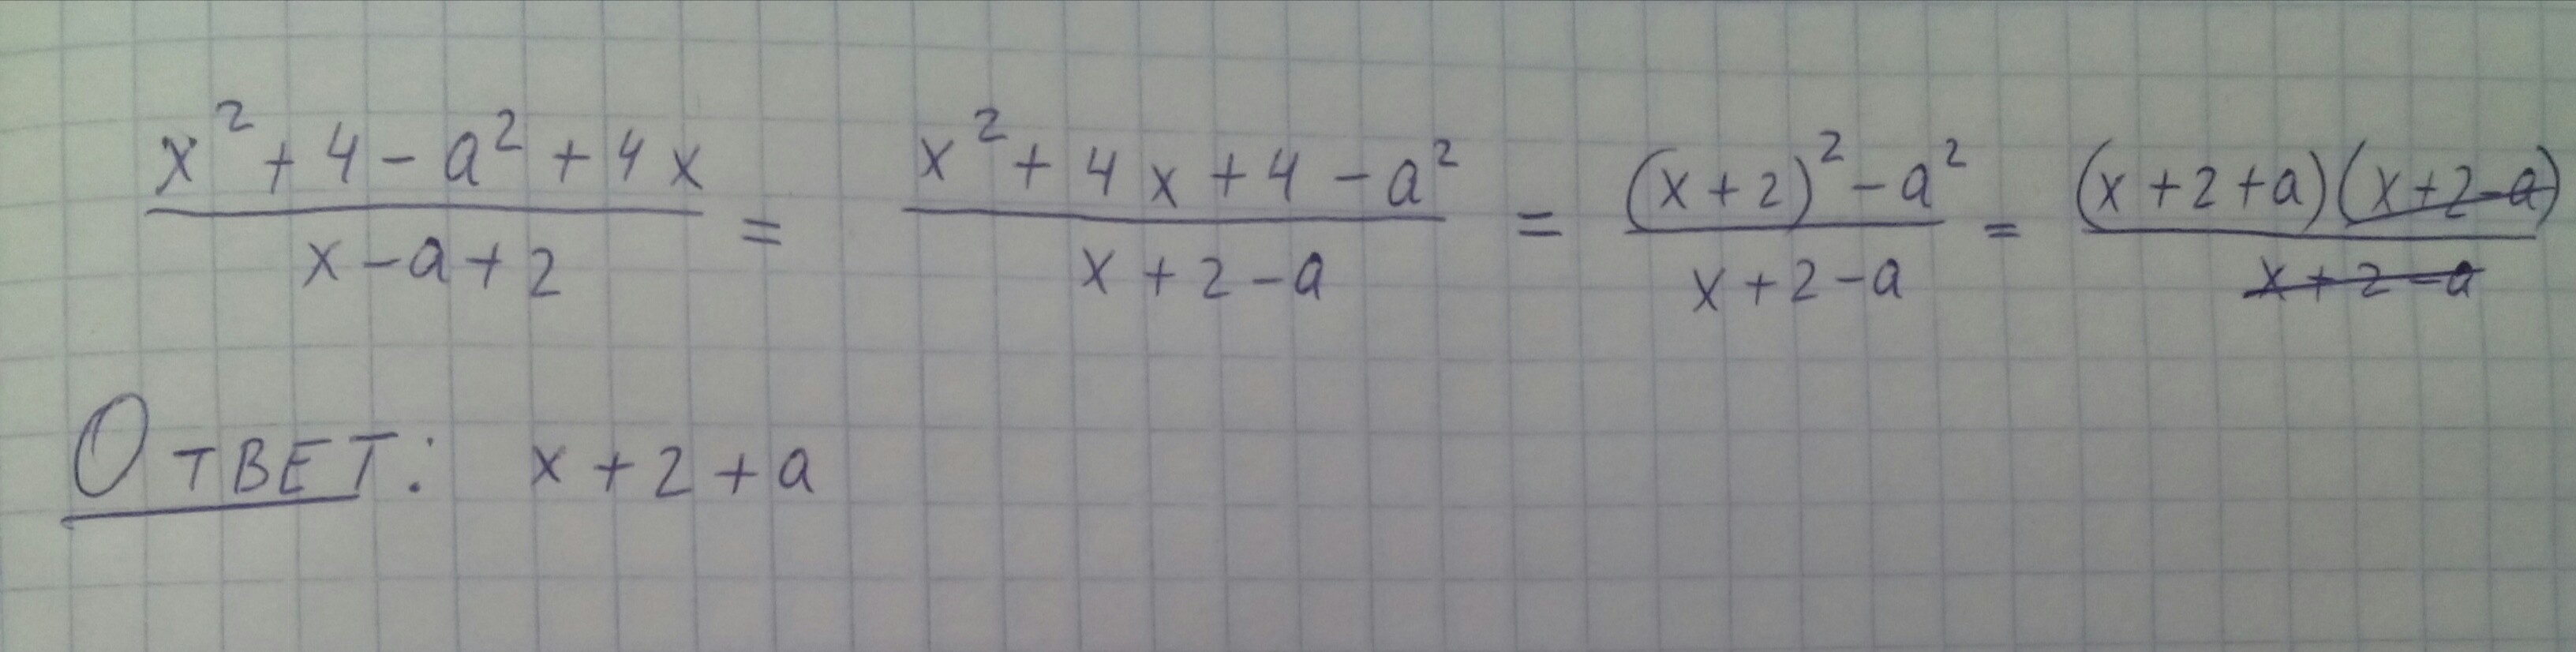 (x² + 4 - a² + 4x)/(x - a + 2) = (x² + 4x + 4 - a²)/(x + 2 - a) = ((x + 2)² - a²)/(x + 2 - a) = ((x + 2 + a)(x + 2 - a))/(x + 2 - a)
Ответ: x + 2 + a